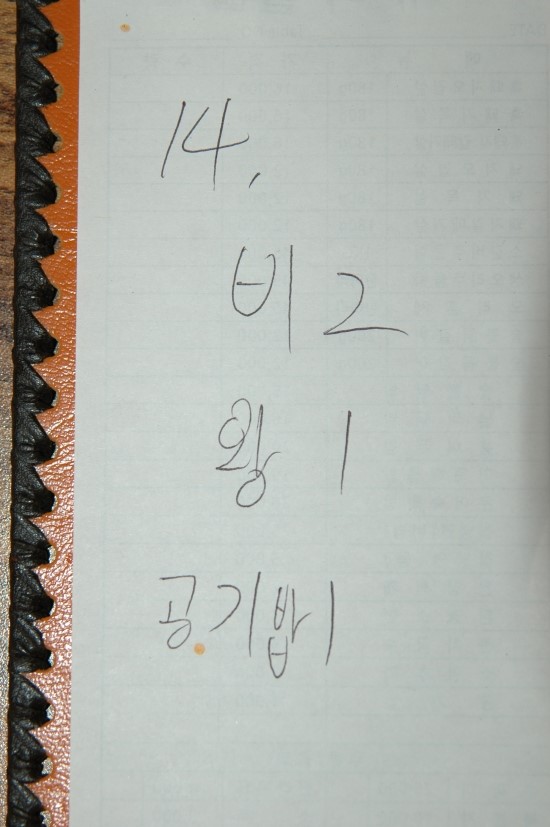 14.
비 2
왕 1
공기밥 1